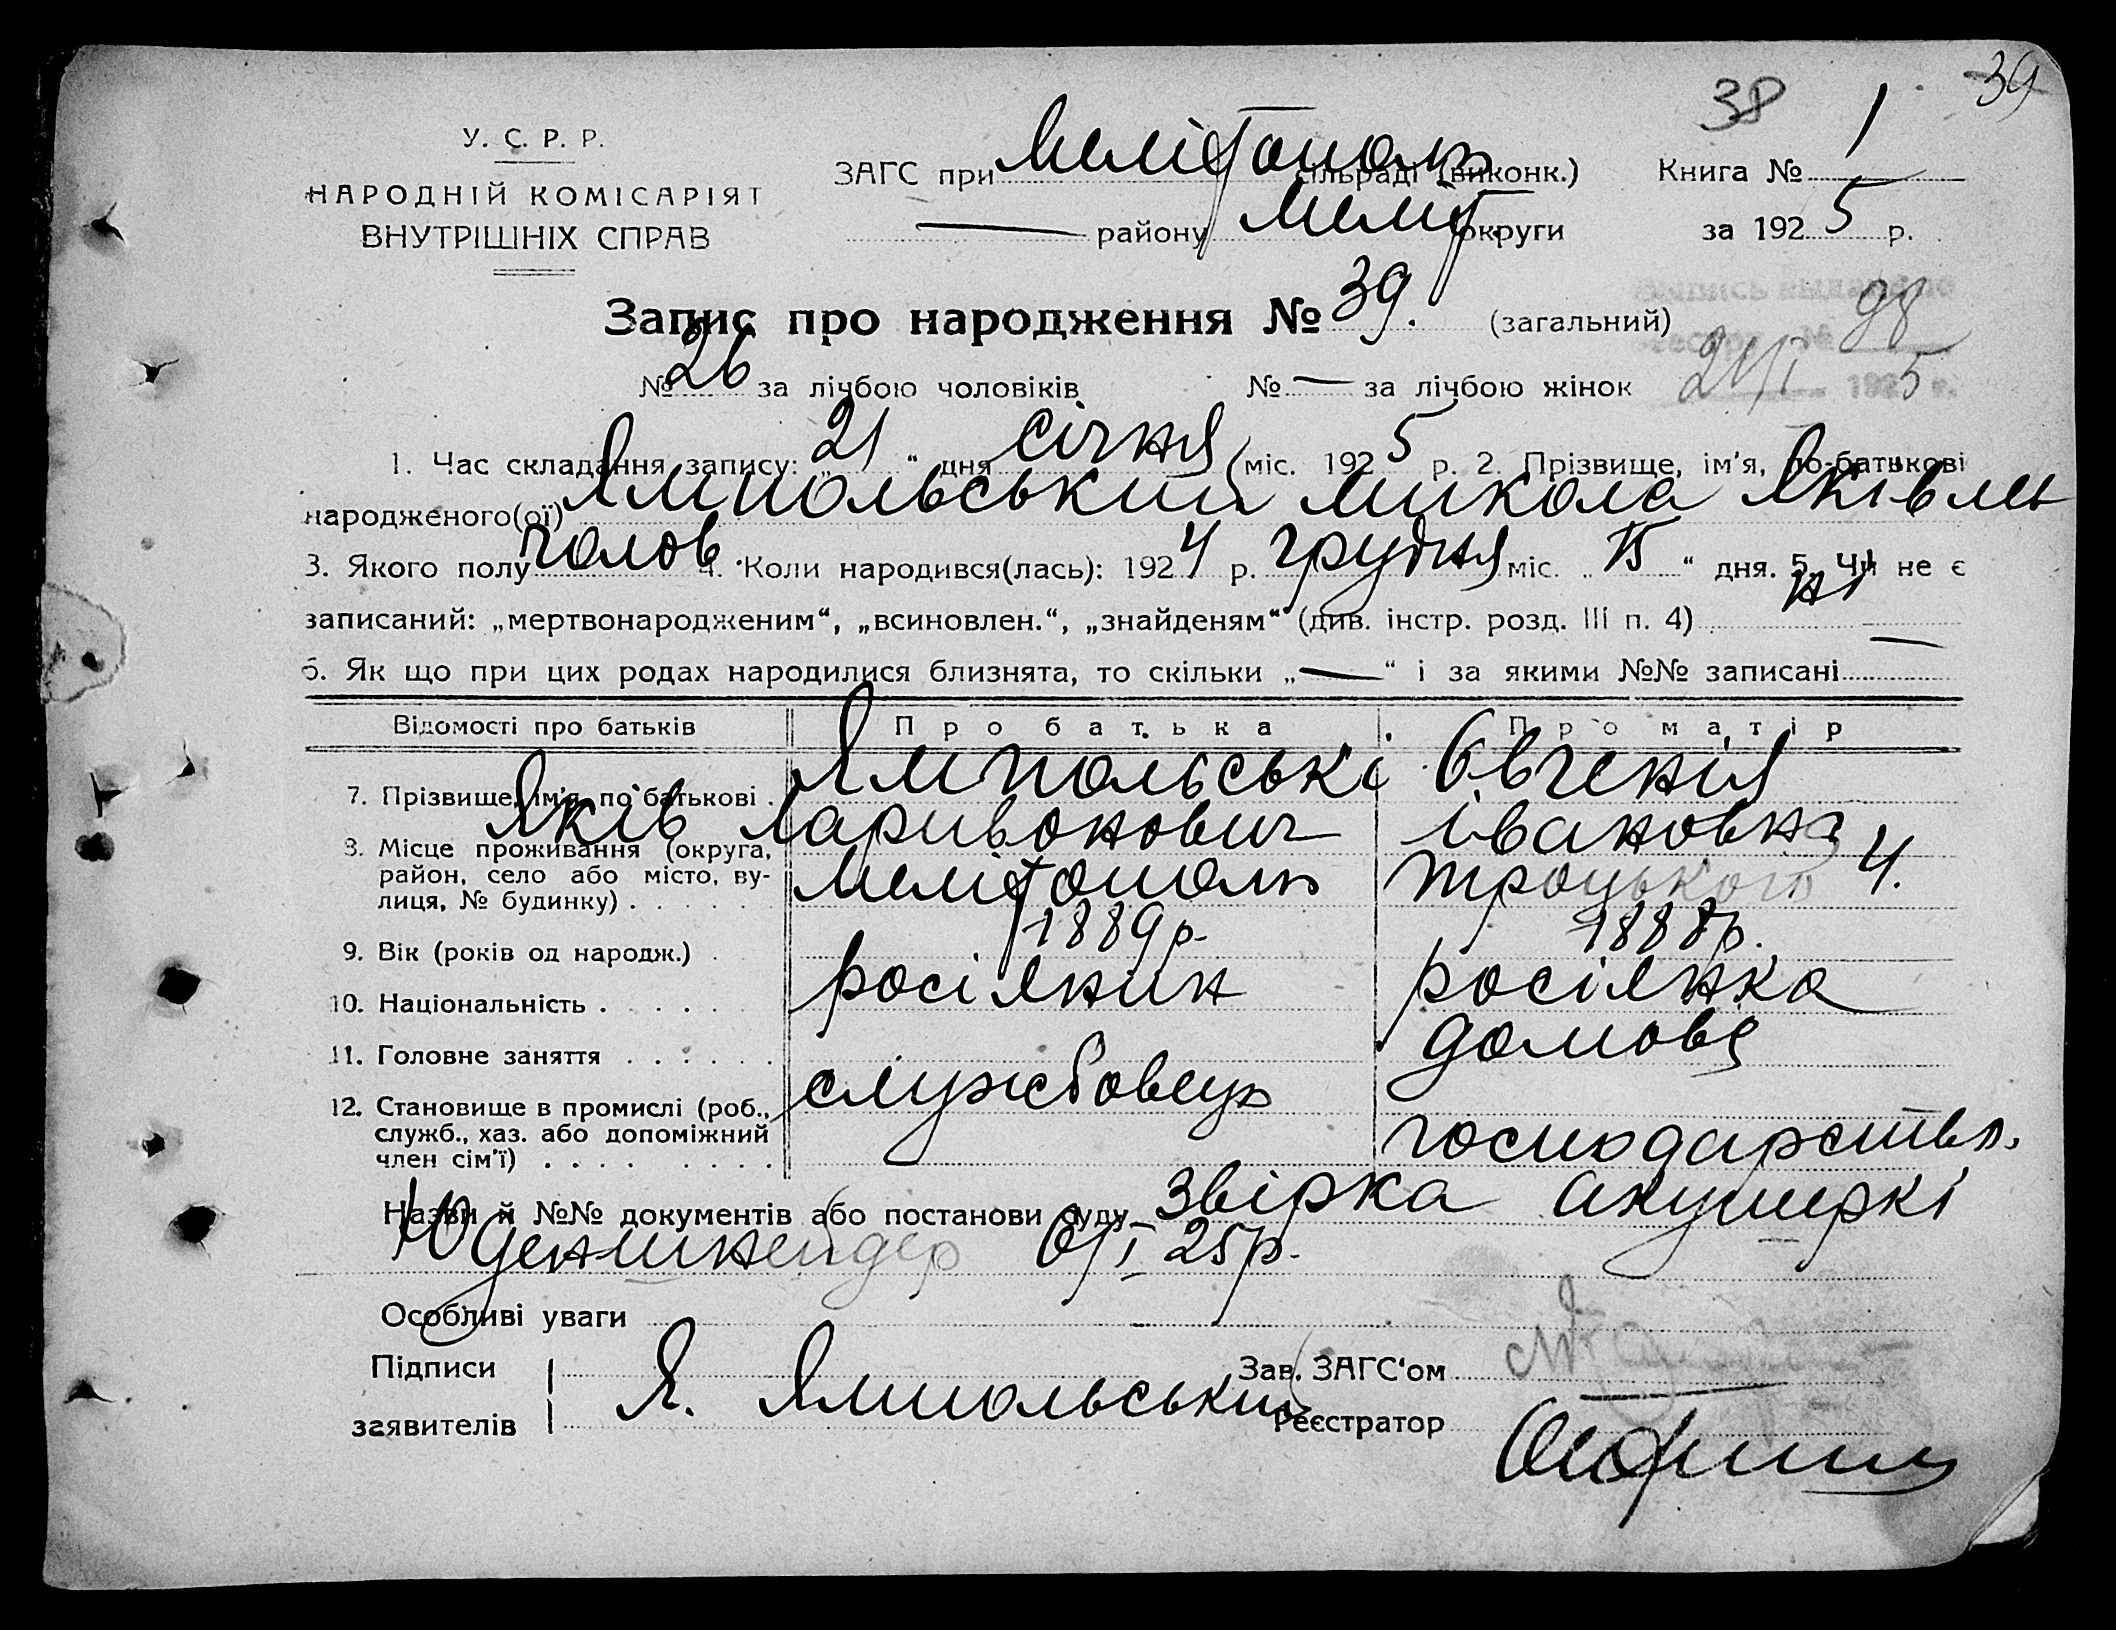 38 39
У. С. Р. Р.
НАРОДНІЙ КОМІСАРІЯТ
ВНУТРІШНІХ СПРАВ
ЗАГС при Мелітополь сільраді (виконк.) Книга № 1
— району Меліт. округи за 1925 р.
Запис про народження № 39. (загальний)
98
№ 26 за лічбою чоловіків № — за лічбою жінок
192 5 р.
1. Час складання запису: „ 21 “ дня січня міс. 1925 р. 2. Прізвище, ім'я, по-батькові
народженого(ої) Ямпольський Микола Яківлев
3. Якого полу чолов. 4. Коли народився(лась): 1924 р. грудня міс. „ 15 “ дня. 5. Чи не є
записаний: „мертвонародженим“, „всиновлен.“, „знайденям“ (див. інстр. розд. III п. 4) ні —
6. Як що при цих родах народилися близнята, то скільки „ — “ і за якими №№ записані
Відомості про батьків Про батька Про матір
7. Прізвище, ім'я, по батькові . Ямпольські Євгенія
Яків Ларивонович Івановна
8. Місце проживання (округа, район, село або місто, вулиця, № будинку) . Мелітополь Троцького 4.
9. Вік (років од народж.) . 1889 р. 1888 р.
10. Національність . росіянин росіянка
11. Головне заняття . домове
12. Становище в промислі (роб., служб., хаз. або допоміжний член сім'ї) . службовець господарство.
Назви й №№ документів або постанови суду Звірка акушеркі
Юденшнейдер 6/I 25 р.
Особливі уваги
Підписи Зав. ЗАГС'ом
заявителів Я. Ямпольський Реєстратор